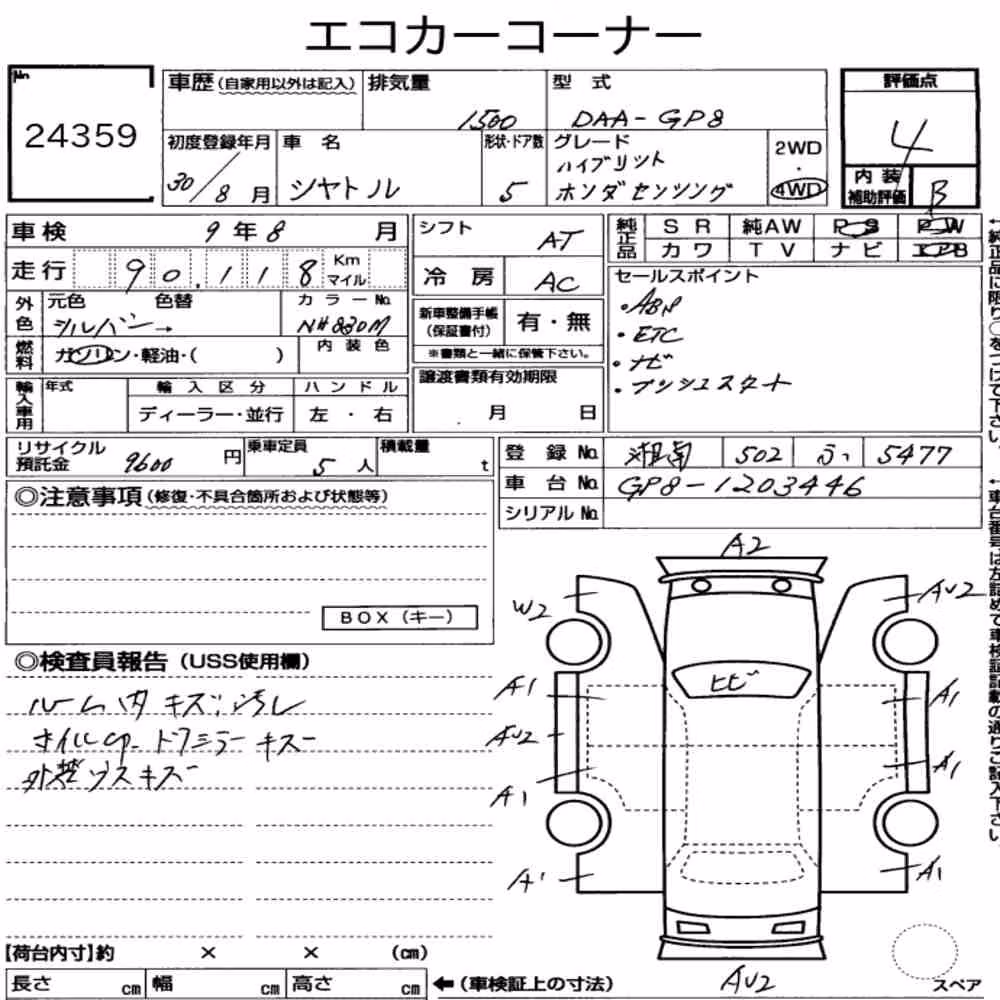 エコカーコーナー
No
24359
車歴(自家用以外は記入) 排気量 1500
型式 DAA-GP8
評価点
4
内装補助評価 B
初度登録年月 30/8月
車名 シャトル
形状・ドア数 5
グレード ハイブリット
ホンダセンシング
2WD・4WD
車検 9年8月
走行 90,118 Km マイル
外色 元色 シルバー→ 色替
カラーNo. NH830M
燃料 ガソリン・軽油・( )
内装色
輸入車用 年式
輸入区分 ディーラー・並行
ハンドル 左・右
シフト AT
冷房 AC
新車整備手帳(保証書付) 有・無
※書類と一緒に保管下さい。
譲渡書類有効期限
月 日
純正品 SR 純AW PS PW
カワ TV ナビ
←純正品に限り○をつけて下さい。
セールスポイント
・ETC
・ナビ
・プッシュスタート
リサイクル預託金 9600円
乗車定員 5人
積載量 t
登録No. 湘南 502 ふ 5477
車台No. GP8-1203446
シリアルNo.
←車台番号は左詰めで車検証記載の通りご記入下さい。
◎注意事項(修復・不具合箇所および状態等)
BOX(キー)
◎検査員報告(USS使用欄)
ルーム内キズ汚レ
ドアミラーキズ
外装ウスキズ
A2
W2
AU2
ヒビ
A1
A1
AU2
A1
A1
A1
A1
AU2
スペア
【荷台内寸】約 × × (cm)
長さ cm 幅 cm 高さ cm
←(車検証上の寸法)